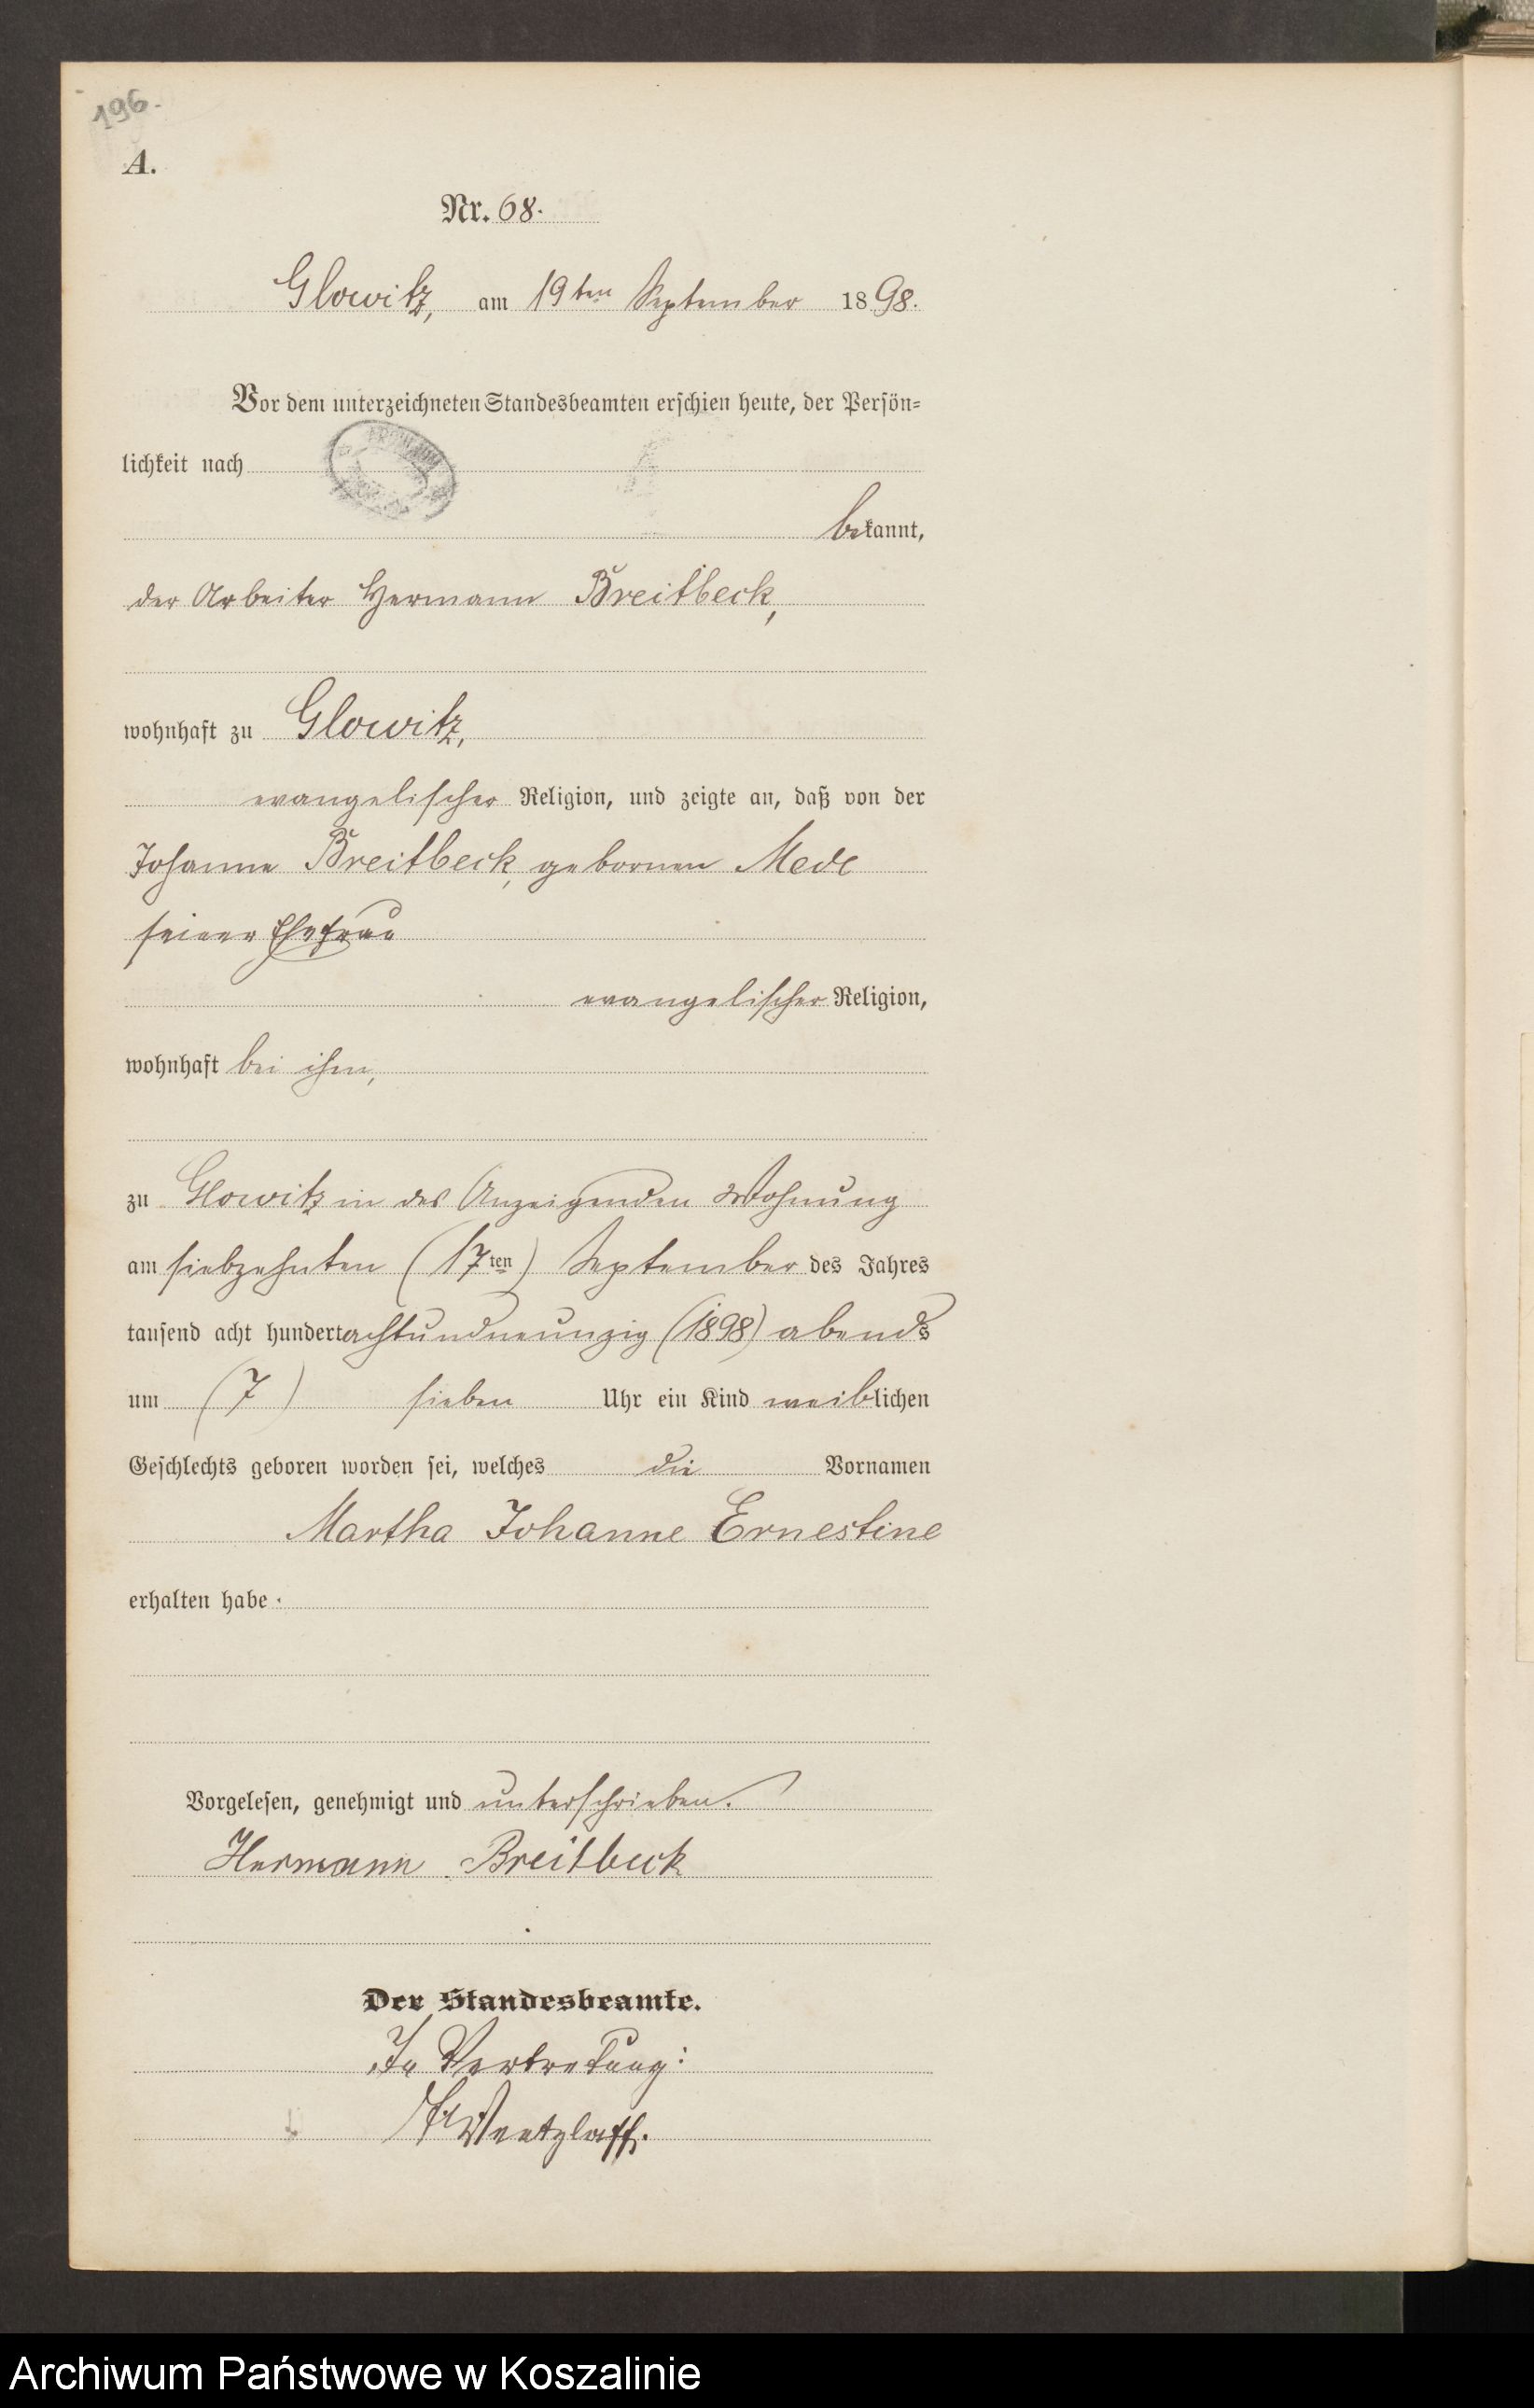 196.
A.
Nr. 68.
Glowitz, am 19ten September 1898.
Vor dem unterzeichneten Standesbeamten erschien heute, der Persön=
lichkeit nach
bekannt,
der Arbeiter Hermann Breitbeck,
wohnhaft zu Glowitz,
evangelischer Religion, und zeigte an, daß von der
Johanne Breitbeck, gebornen Mede
seiner Ehefrau
evangelischer Religion,
wohnhaft bei ihm,
zu Glowitz in des Anzeigenden Wohnung
am siebzehnten (17ten) September des Jahres
tausend acht hundert achtundneunzig (1898) abends
um (7) sieben Uhr ein Kind weiblichen
Geschlechts geboren worden sei, welches die Vornamen
Martha Johanne Ernestine
erhalten habe.
Vorgelesen, genehmigt und unterschrieben.
Hermann Breitbeck
Der Standesbeamte.
In Vertretung:
Wentzlaff.
Archiwum Państwowe w Koszalinie